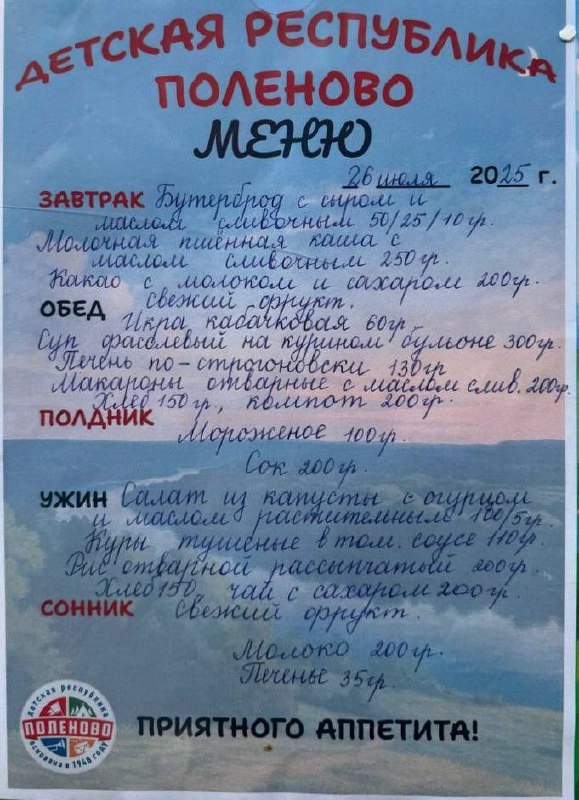 ДЕТСКАЯ РЕСПУБЛИКА
ПОЛЕНОВО
МЕНЮ
26 июля 2025 г.
ЗАВТРАК Бутерброд с сыром и
маслом сливочным 50/25/10гр.
Молочная пшённая каша с
маслом сливочным 250гр.
Какао с молоком и сахаром 200гр.
свежий фрукт.
ОБЕД Икра кабачковая 60гр
Суп фасолевый на курином бульоне 300гр.
Печень по-строгоновски 130гр
Макароны отварные с маслом слив. 200гр.
Хлеб 150гр, компот 200гр.
ПОЛДНИК
Мороженое 100гр.
Сок 200гр.
УЖИН Салат из капусты с огурцом
и маслом растительным 100/5гр.
Куры тушеные в том. соусе 110гр.
Рис отварной рассыпчатый 200гр.
Хлеб 150, чай с сахаром 200гр.
СОННИК свежий фрукт.
Молоко 200гр.
Печенье 35гр.
детская республика
ПОЛЕНОВО
основана в 1948 году
ПРИЯТНОГО АППЕТИТА!